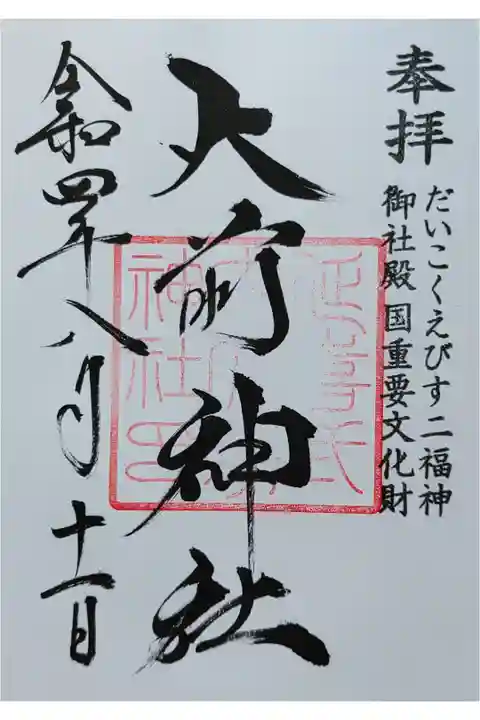 奉拝
だいこくえびす二福神
御社殿 国重要文化財
大前神社
令和四年八月十一日